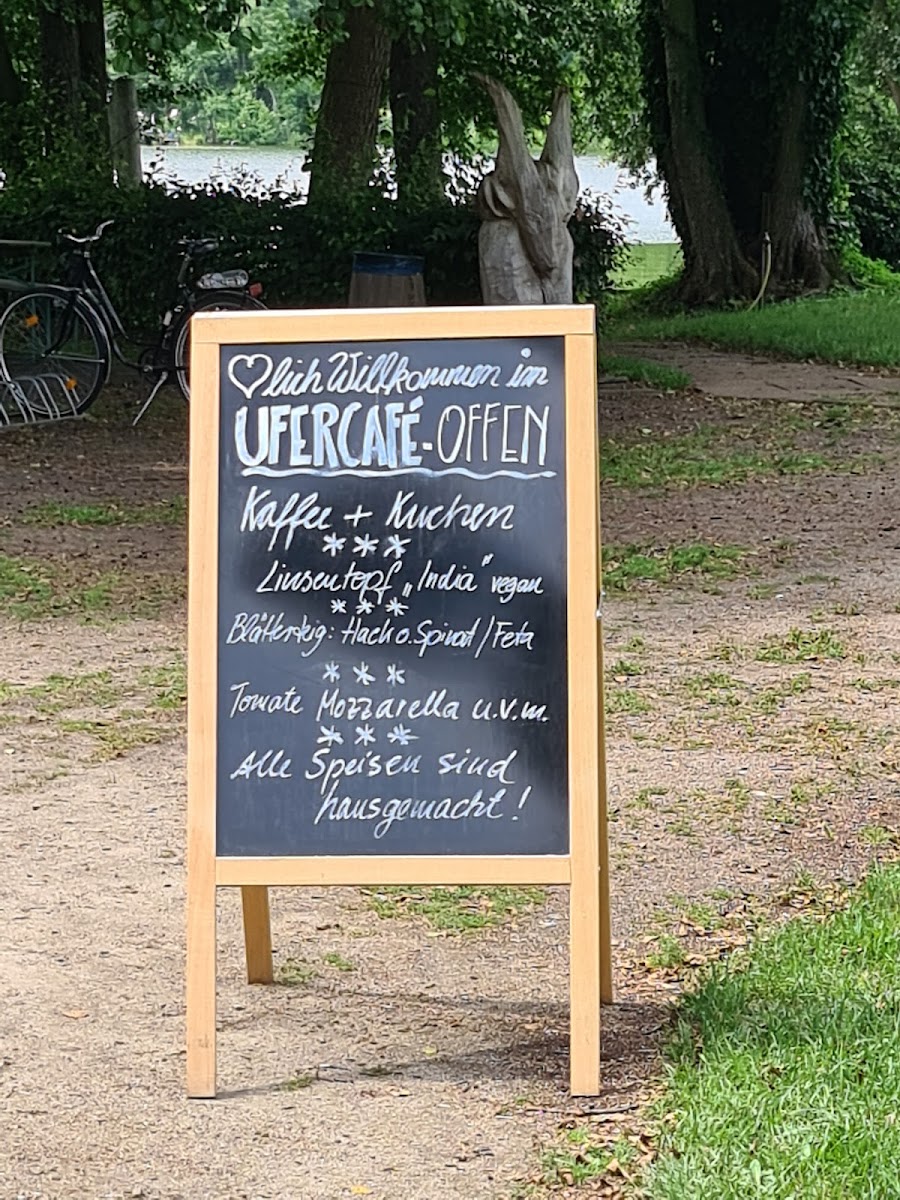 ♡lich Willkommen im
UFERCAFÉ-OFFEN
Kaffee + Kuchen
***
Linsentopf „India" vegan
***
Blätterteig: Hack o. Spinat/Feta
***
Tomate Mozzarella u.v.m.
***
Alle Speisen sind
hausgemacht!